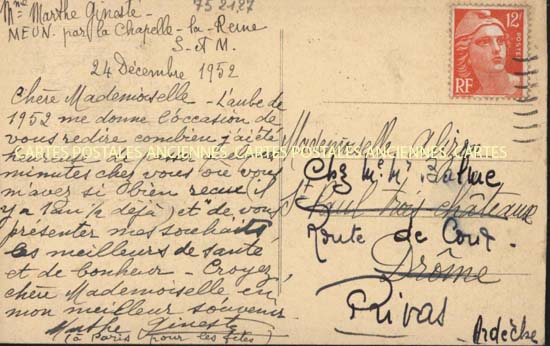 Mme Marthe Gineste -
752127
MEUN. par la Chapelle-la-Reine
S-et-M.
24 Décembre 1952
Chère Mademoiselle - L'aube de
1952 me donne l'occasion de
vous redire combien j'ai été
minutes chez vous où vous
m'avez si bien reçue il
y a 1 an 1/2 déjà et de vous
présenter mes souhaits
les meilleurs de santé
et de bonheur - Croyez,
chère Mademoiselle en
mon meilleur souvenir.
Marthe Gineste
(à Paris pour les fêtes)
CARTES POSTALES ANCIENNES CARTES POSTALES ANCIENNES CARTES
12F
POSTES
RF
Mademoiselle
Chez Mr
St Paul Trois châteaux
Route de
Drôme
Privas
Ardèche